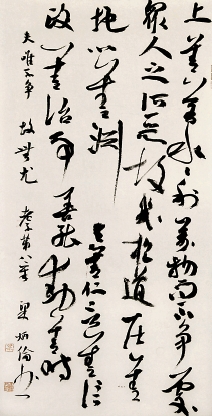 上善若水水善利萬物而不争處
眾人之所惡故幾於道居善
地心善渊與善仁言善信
政善治事善能動善時
夫唯不争 故無尤 老子第八章 梁炳倫书